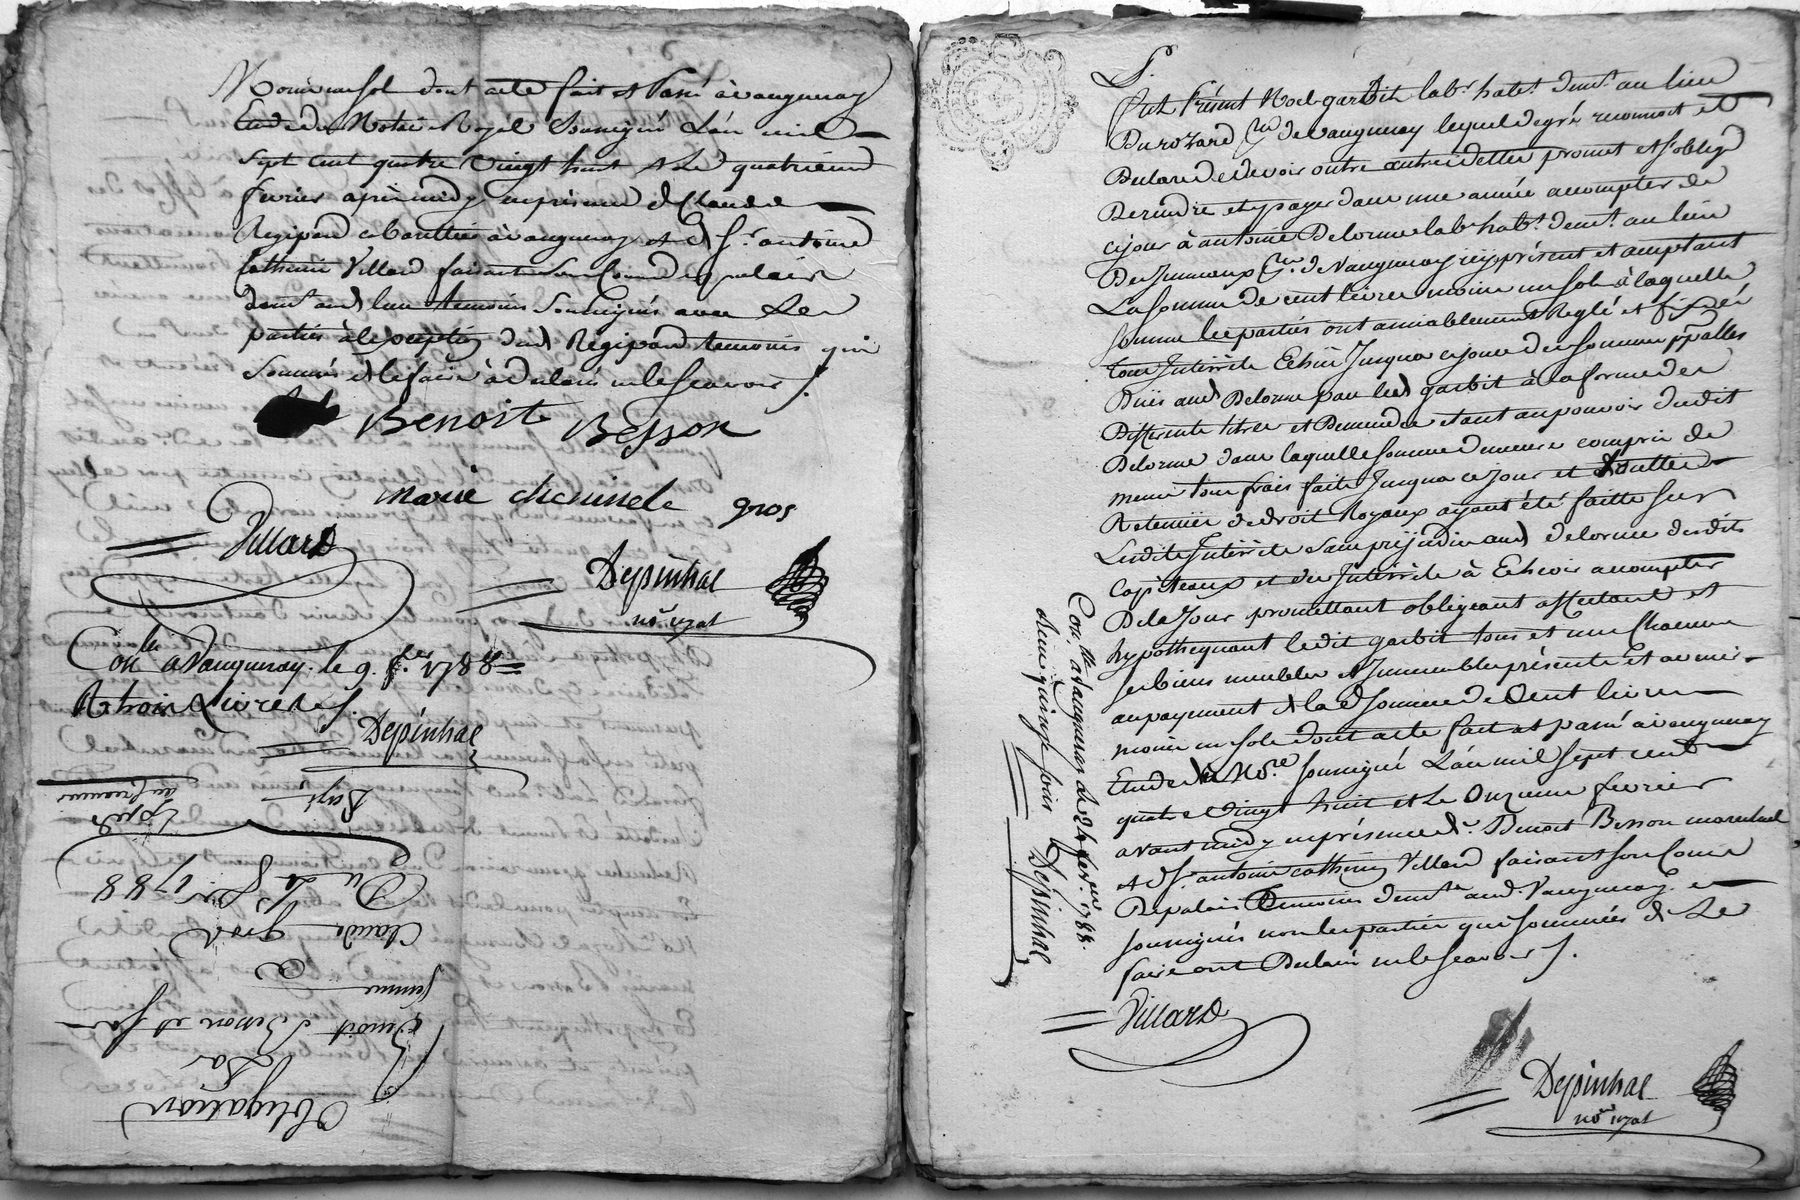 moins un sol dont acte fait et passé à vaugneray
Etude du Notaire Royal soussigné L'an mil
sept cent quatre vingt huit et Le quatrieme
fevrier après midy en présence de Claude
Regipard cabarettier à vaugneray et de Sr. antoine
Catherin Villard faisant son Cours de palais
demt. aud. lieu temoins soussignés avec Les
parties à l'exception dud. Regipard temoins qui
sommés de le faire à declaré ne le scavoir ./.
Benoit Besson
marie gros
Villard
Depinhac
nore. royal
Conlle. a Vaugneray. le 9. fer. 1788
R. trois Livres ./.
Depinhac
Payé
Expédié
au creancier
Du 4 fer. 1788
Claude gros
a
Benoit Besson et sa
femme
Par
Obligation
S.
fut Présent Noel garbit labr. habt. demt. au lieu
Du rozard psse. de Vaugneray lequel de gré reconnoit et
Declare de devoir outre autres dettes promet et s'oblige
De rendre et payer dans une année a compter de
ce jour à antoine Delorme labr. habt. demt. au lieu
De psse. de Vaugneray icy présent et acceptant
La somme de cent livres moins un sol à laquelle
somme les parties ont amiablement Reglé et fixé
tous Interrêts Echus Jusqua ce jour des sommes ppalles
Dues aud. Delorme par led. garbit à la forme des
Differents titres et Demandes etant au pouvoir dudit
Delorme dans laquelle somme demeure compris de
meme tous frais faits Jusqua ce jour et
Retenue de droit Royaux ayant été faitte sur
Lesdits Interrêts sans prejudice aud. delorme desdits
Capiteaux et des Interrêts à Echoir a compter
De ce Jour promettant obligeant affectant et
hypothequant ledit garbit tous et un Chacun
ses biens meubles et Immeubles présents et avenir
au payement de lad. somme de Cent livres
moins un sol dont acte fait et passé à vaugneray
Etude du Nore. soussigné L'an mil sept cent
quatre Vingt huit et Le Onzieme fevrier
avant midy en présence de Sr. Benoit Besson marechal
et de Sr. antoine catherin Villard faisant son Cours
De palais temoins demts. aud. Vaugneray
soussignés non les parties qui sommées de Le
faire ont Declaré ne le scavoir ./.
Conlle. a Vaugneray le 24 fevr. 1788.
Reçu quinze sous Depinhac
Villard
Depinhac
nore. royal